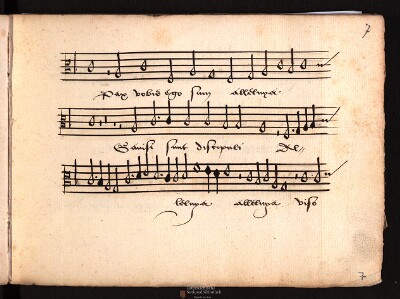 7
Pax vobis Ego sum alleluya
Gavisi sunt discipuli Al-
leluya alleluya viso
7